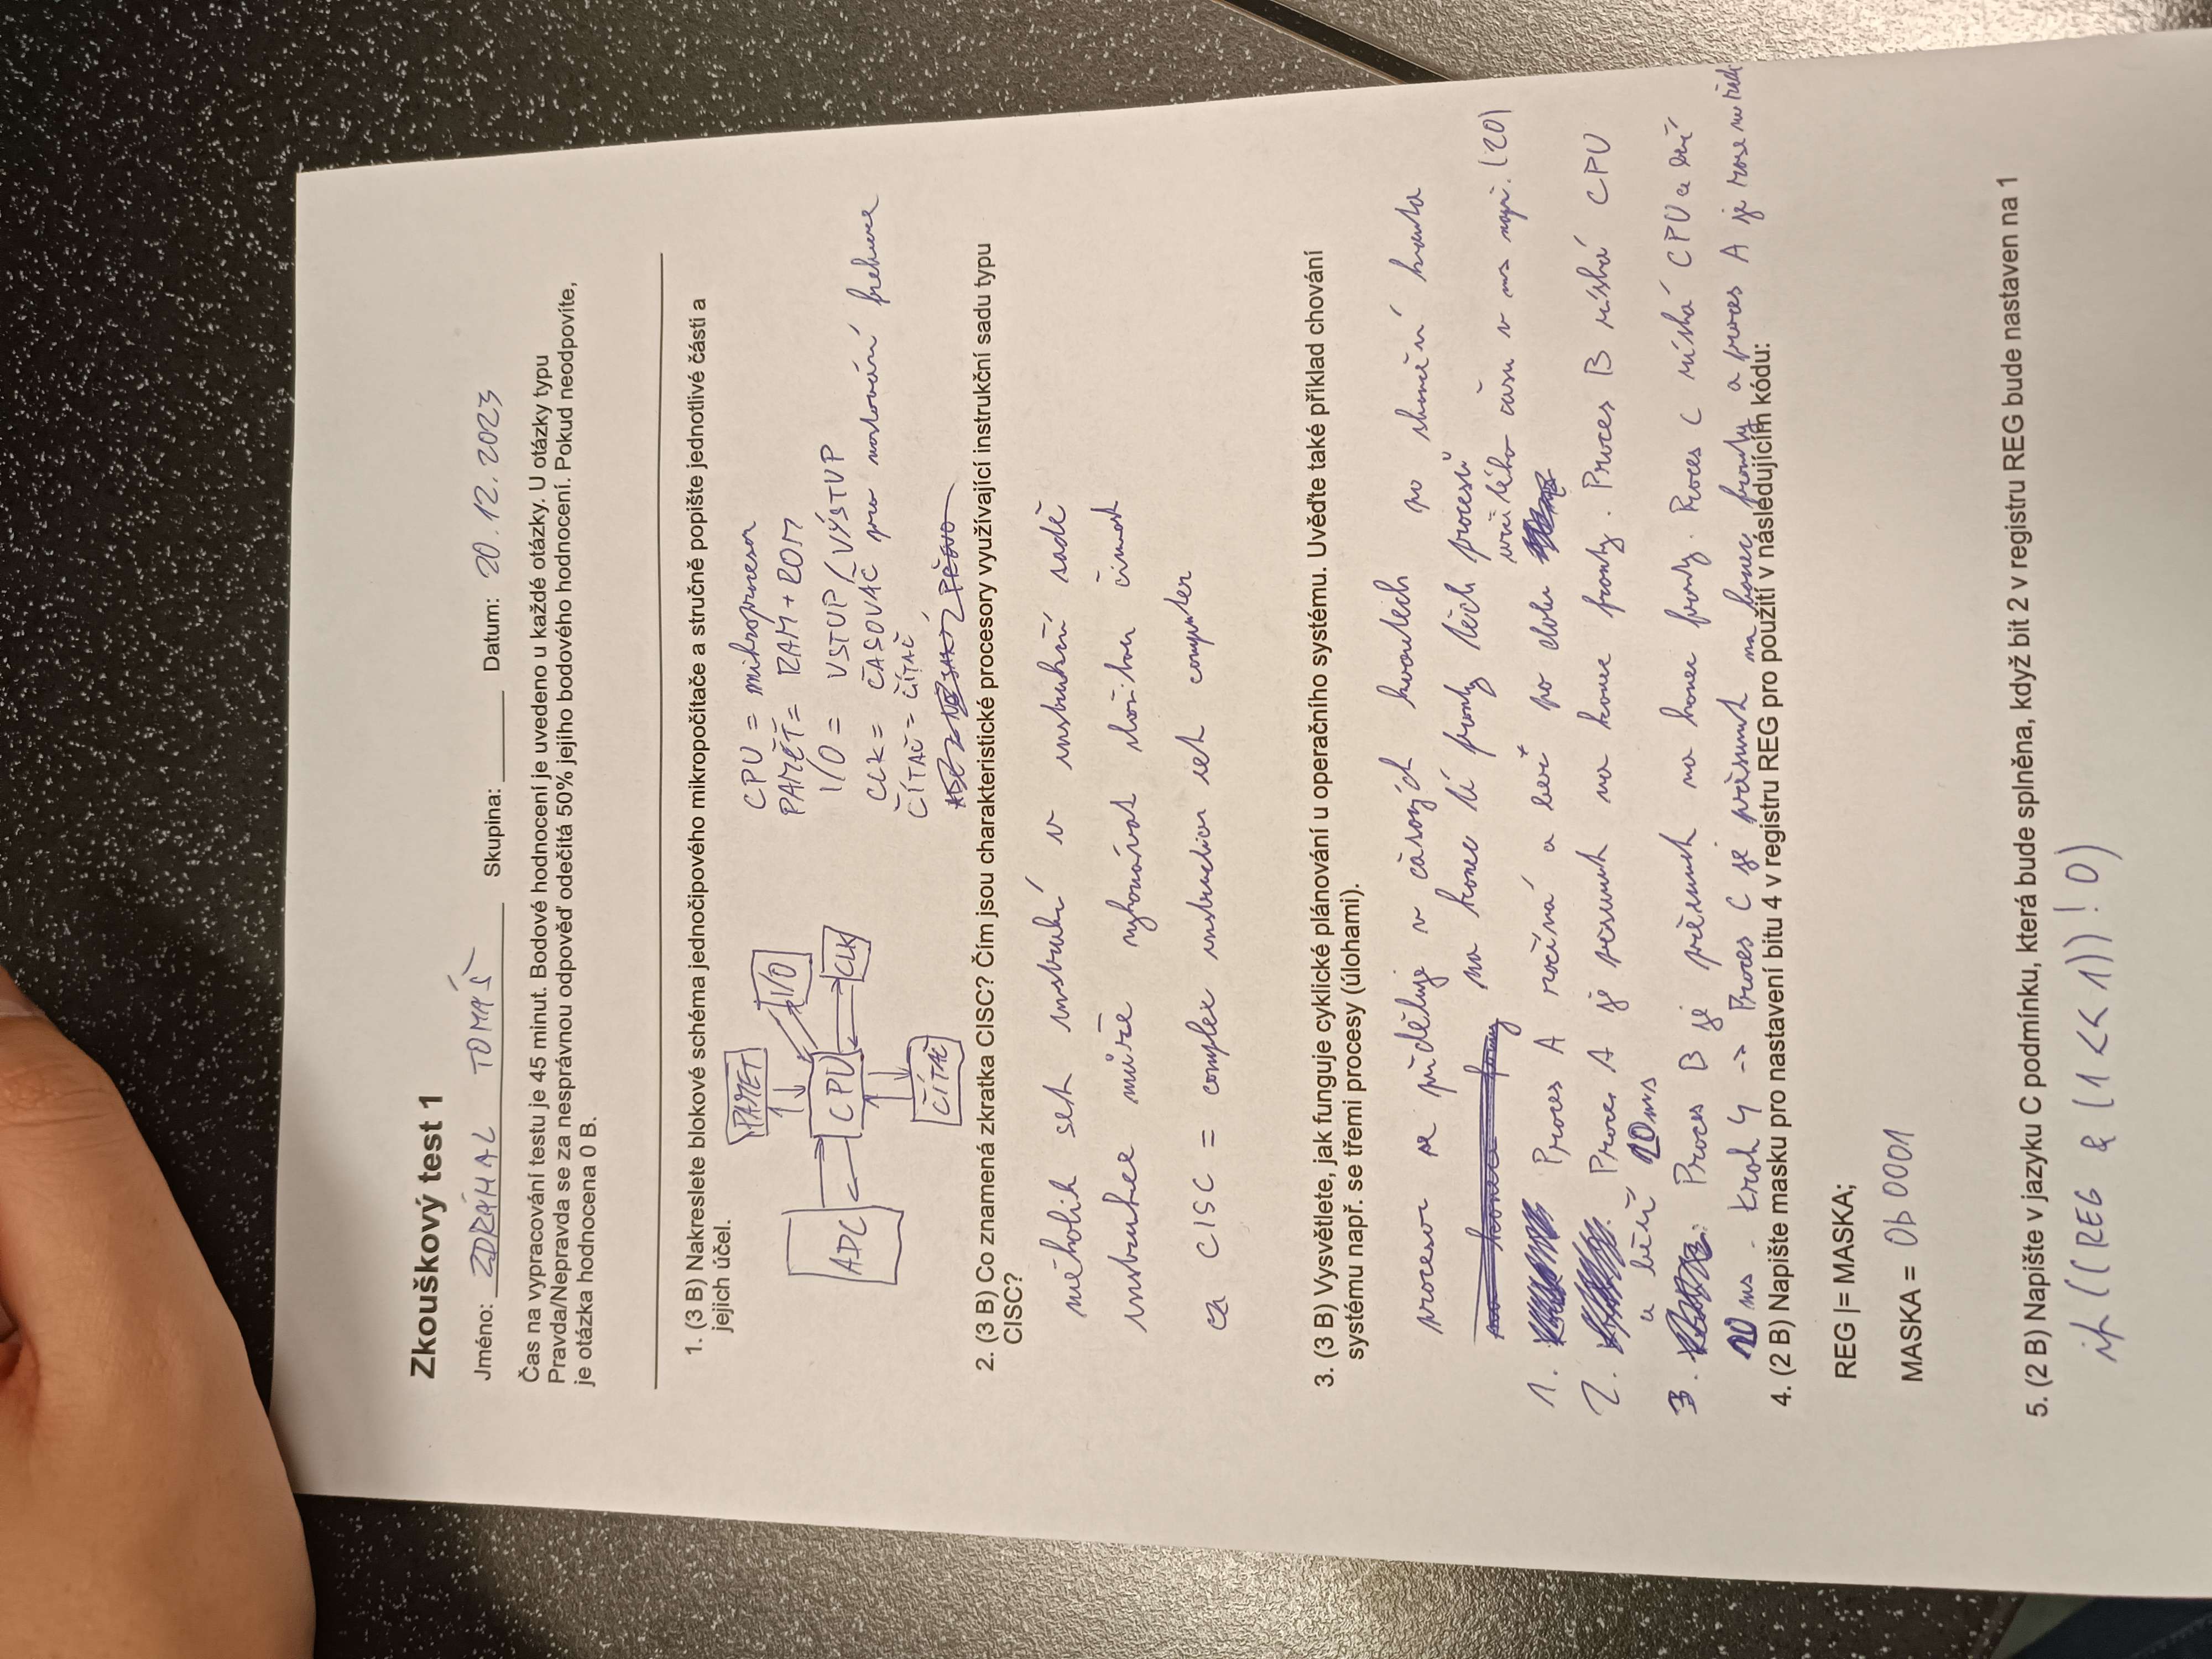 Zkouškový test 1
Jméno: ZDRÁHAL TOMÁŠ Skupina: ______ Datum: 20.12.2023
Čas na vypracování testu je 45 minut. Bodové hodnocení je uvedeno u každé otázky. U otázky typu
Pravda/Nepravda se za nesprávnou odpověď odečítá 50% jejího bodového hodnocení. Pokud neodpovíte,
je otázka hodnocena 0 B.
1. (3 B) Nakreslete blokové schéma jednočipového mikropočítače a stručně popište jednotlivé části a
jejich účel.
ADC
PAMĚŤ
CPU
I/O
CLK
ČÍTAČ
CPU = mikroprocesor
PAMĚŤ = RAM + ROM
I/O = VSTUP / VÝSTUP
CLK = ČASOVAČ pro nastavování frekvence
ČÍTAČ = ČÍTAČ
2. (3 B) Co znamená zkratka CISC? Čím jsou charakteristické procesory využívající instrukční sadu typu
CISC?
několik set instrukcí v instrukční sadě
instrukce může vykonávat složitou činnost
CISC = complex instruction set computer
3. (3 B) Vysvětlete, jak funguje cyklické plánování u operačního systému. Uveďte také příklad chování
systému např. se třemi procesy (úlohami).
procesor se přiděluje v časových kvantech po skončení kvanta
na konec fronty těch procesů
1. Proces A začíná a běží po dobu určitého času v ms např. (20)
2. Proces A je přesunut na konec fronty. Proces B získá CPU
a běží 20ms
3. Proces B je přesunut na konec fronty. Proces C získá CPU a běží
20 ms. krok 4 -> Proces C se přesunut na konec fronty a proces A je zase na řadě
4. (2 B) Napište masku pro nastavení bitu 4 v registru REG pro použití v následujícím kódu:
REG |= MASKA;
MASKA = 0b 0001
5. (2 B) Napište v jazyku C podmínku, která bude splněna, když bit 2 v registru REG bude nastaven na 1
if ((REG & (1 << 1)) ! 0)